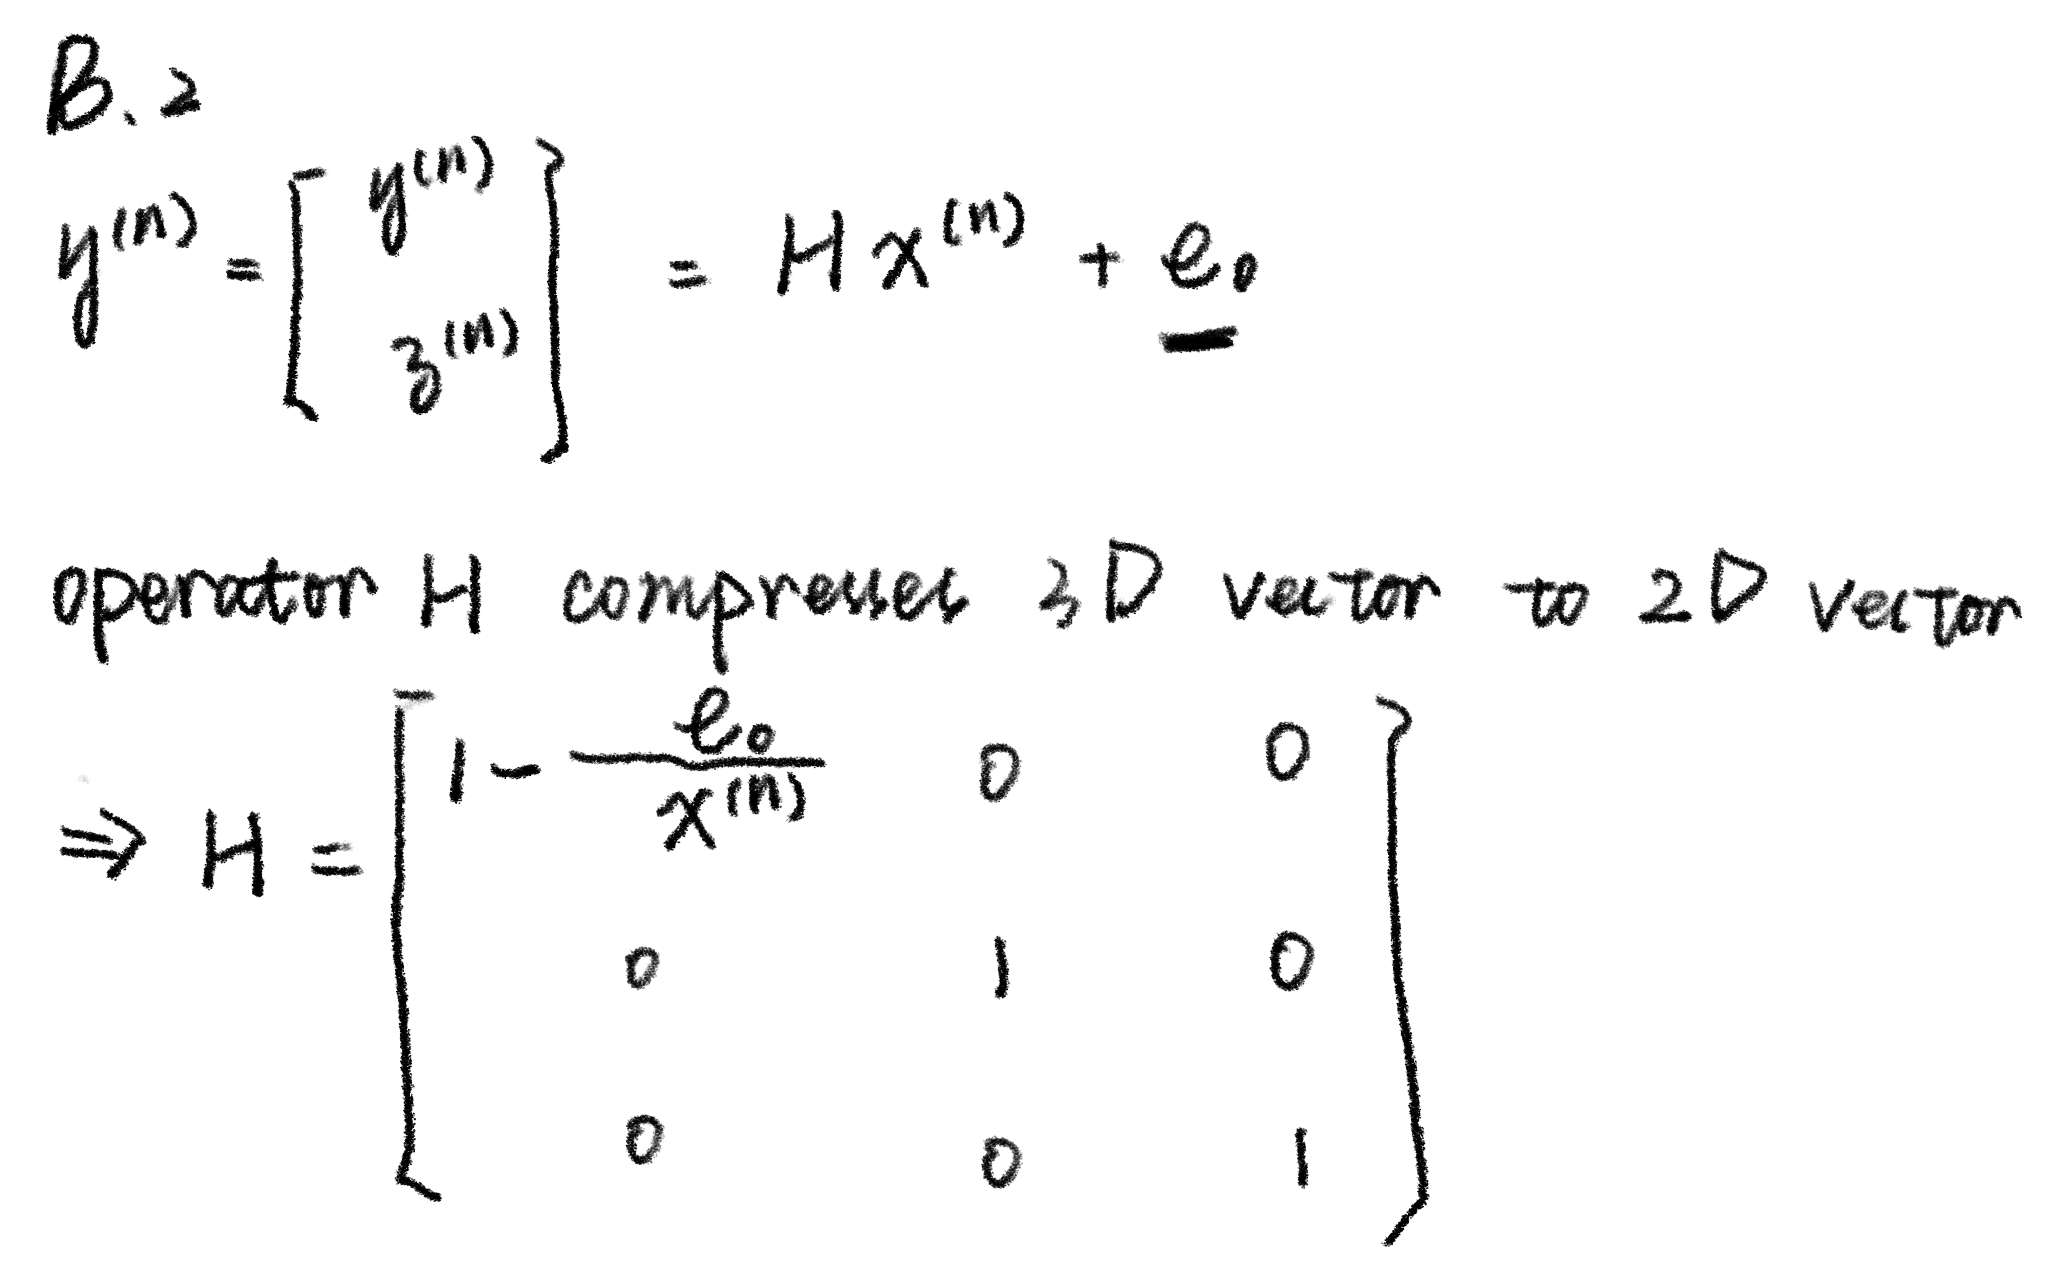 B.2
y^(n) = [ y^(n) ; z^(n) ] = H x^(n) + e₀
operator H compresses 3D vector to 2D vector
⇒ H = [ 1 - e₀/x^(n) 0 0 ; 0 1 0 ; 0 0 1 ]